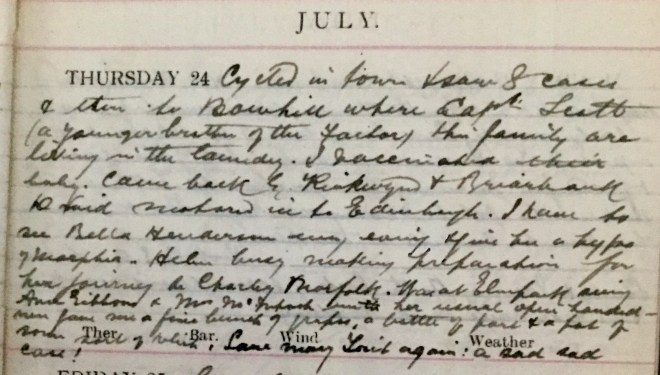 JULY.
THURSDAY 24 Cycled in town & saw 8 cases
& then to Bowhill where Capt. Scott
(a younger brother of the Factor) & his family are
living in the laundry. I vaccinated their
baby. Came back by & Briarbank
in to Edinburgh. I have to
see Bella Henderson every evening & give her a hypo
of morphia. Helen busy making preparation for
her journey to Charley Norfolk. Was at Elmpark seeing
Anne Gibbons & Mrs McIntosh with her usual open handed-
ness gave me a fine bunch of grapes, a bottle of port & a pot of
some sort of
Ther. Bar. Wind Weather
again: a sad sad
case!
FRIDAY 25